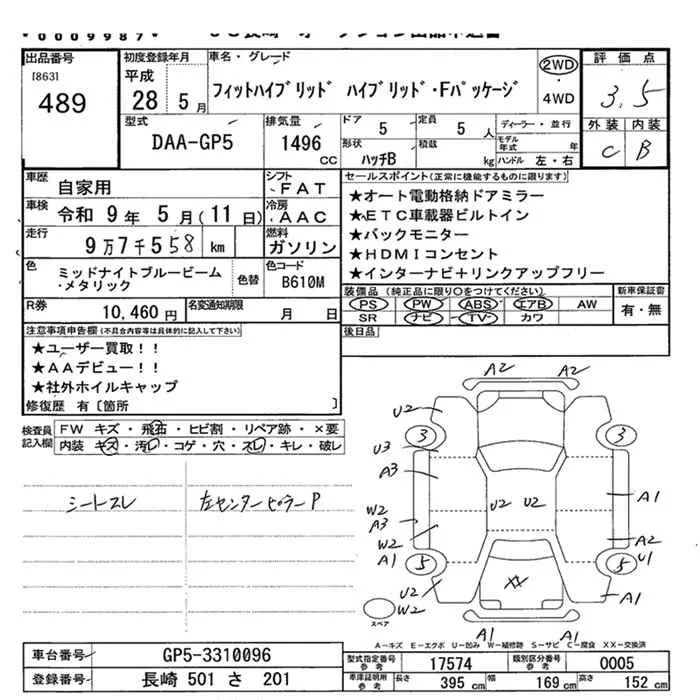 *0009987*
出品番号 初度登録年月 車名・グレード 2WD 評価点
[863] 平成 4WD
489 28 5月 フィットハイブリッド ハイブリッド・Fパッケージ 3.5
型式 排気量 ドア 5 定員 5人 ディーラー・並行 外装 内装
DAA-GP5 1496 CC 形状 ハッチB 積載 kg モデル年式 年 ハンドル 左・右 C B
車歴 自家用 シフト FAT セールスポイント(正常に機能するものに限ります)
車検 令和 9年 5月(11日) 冷房 AAC ★オート電動格納ドアミラー
★ETC車載器ビルトイン
走行 9万7千558km 燃料 ガソリン ★バックモニター
★HDMIコンセント
色 ミッドナイトブルービーム・メタリック 色替 色コード B610M ★インターナビ+リンクアップフリー
装備品(純正品に限り○をつけてください) 新車保証書
R券 10,460円 名変通知期限 月 日 PS PW ABS エアB AW 有・無
SR ナビ TV カワ
注意事項申告欄(不具合内容等は具体的に記入して下さい) 後日品
★ユーザー買取!!
★AAデビュー!!
★社外ホイルキャップ
修復歴 有[箇所 ]
検査員記入欄 FW キズ・飛石・ヒビ割・リペア跡・×要
内装 キズ・汚レ・コゲ・穴・スレ・キレ・破レ
シートスレ 左センターピラーP
A2 A2
U2
3 3
U3
A3
U2 U2
A1
W2
A3
W2 A2
A1 U1
5 5
U2 XX A1
W2
スペア
A1 A1
A-キズ E-エクボ U-凹み W-補修跡 S-サビ C-腐食 XX-交換済
車台番号 GP5-3310096 型式指定番号 参考 17574 類別区分番号 参考 0005
登録番号 長崎 501 さ 201 車庫証明用 参考 長さ 395 cm 幅 169 cm 高さ 152 cm